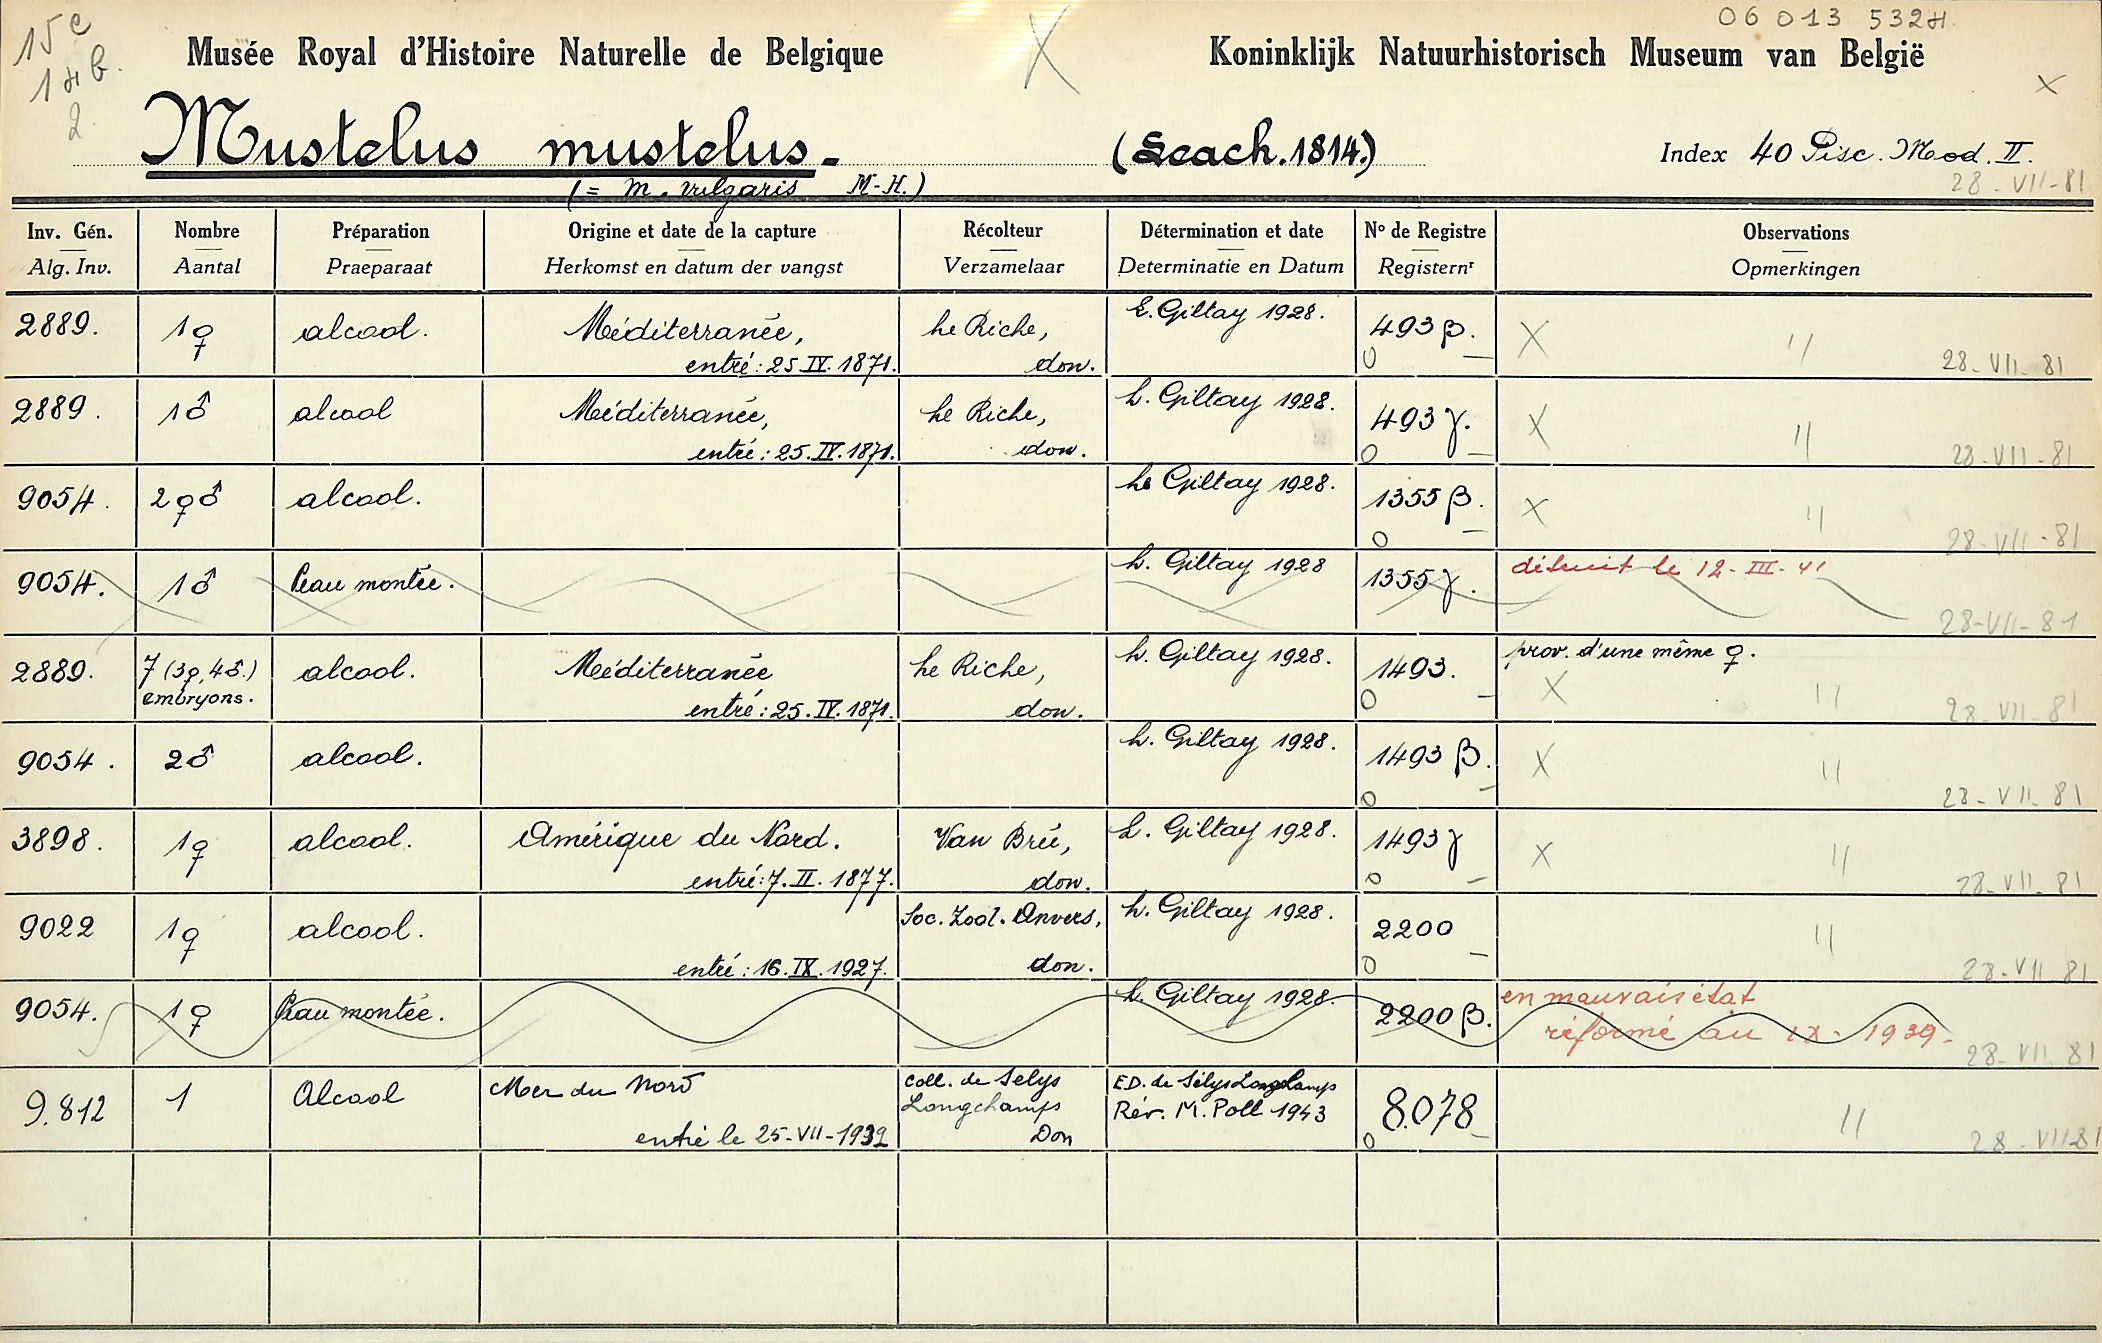 15c
14b.
2
06 013 5324.
Musée Royal d'Histoire Naturelle de Belgique X Koninklijk Natuurhistorisch Museum van België
X
Mustelus mustelus. (Leach. 1814.) Index 40 Pisc. Mod. II.
(= M. vulgaris M-H.) 28-VII-81
Inv. Gén. Nombre Préparation Origine et date de la capture Récolteur Détermination et date No de Registre Observations
Alg. Inv. Aantal Praeparaat Herkomst en datum der vangst Verzamelaar Determinatie en Datum Registernr Opmerkingen
2889. 1♀ alcool. Méditerranée, Le Riche, L. Giltay 1928. 493 β. X //
entré: 25.IV.1871. don. 0 – 28-VII-81
2889. 1♂ alcool Méditerranée, Le Riche, L. Giltay 1928. 493 γ. X //
entré: 25.IV.1871. don. 0 – 28-VII-81
9054. 2♀♂ alcool. L. Giltay 1928. 1355 β. X //
0 – 28-VII-81
9054. 1♂ Peau montée. L. Giltay 1928 1355 γ. détruit le 12-III-41
28-VII-81
2889. 7 (3♀, 4♂.) alcool. Méditerranée Le Riche, L. Giltay 1928. 1493. prov. d'une même ♀.
embryons. entré: 25.IV.1871. don. 0 – X // 28-VII-81
9054. 2♂ alcool. L. Giltay 1928. 1493 β. X //
0 – 28-VII-81
3898. 1♀ alcool. Amérique du Nord. Van Breé, L. Giltay 1928. 1493 γ X //
entré: 7.II.1877. don. 0 – 28-VII-81
9022 1♀ alcool. Soc. Zool. Anvers, L. Giltay 1928. 2200 //
entré: 16.IX.1927. don. 0 – 28-VII-81
9054. 1♀ Peau montée. L. Giltay 1928. 2200 β. en mauvais état
réformé au IX-1939-
28-VII-81
9.812 1 Alcool Mer du Nord Coll. de Selys ED. de Sélys Longchamps 8078 //
Longchamps Rév. M. Poll 1943
entré le 25-VII-1932 Don 0 – 28-VII81